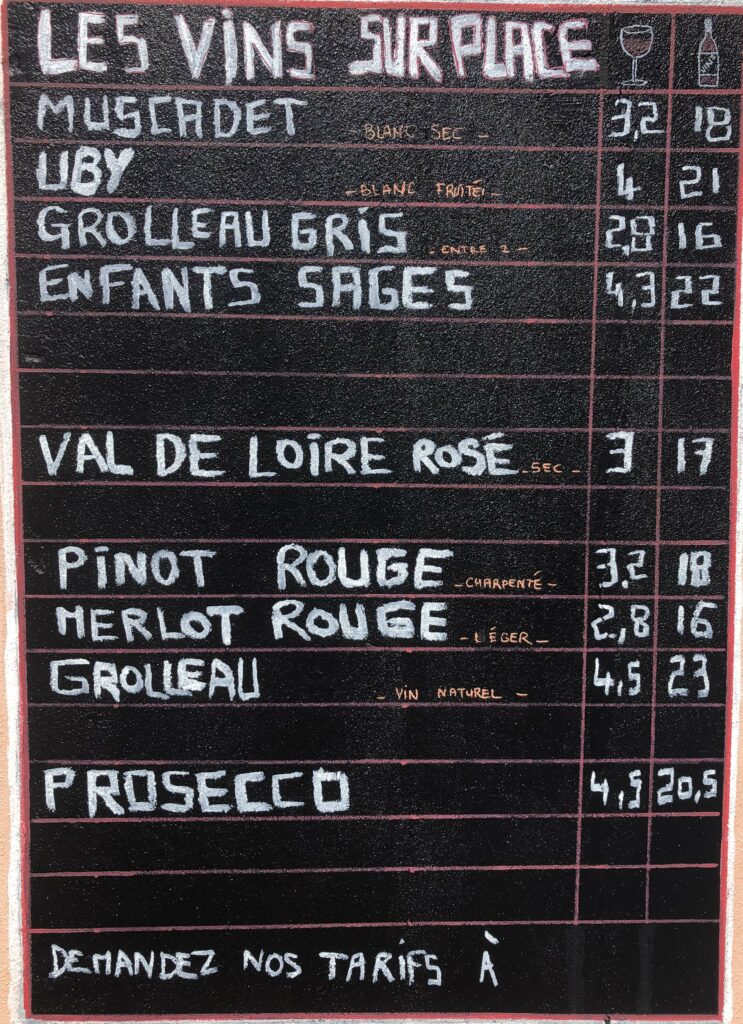 LES VINS SUR PLACE
MUSCADET - BLANC SEC - 3,2 18
UBY - BLANC FRUITÉ - 4 21
GROLLEAU GRIS - ENTRE 2 - 2,8 16
ENFANTS SAGES 4,3 22
VAL DE LOIRE ROSÉ - SEC - 3 17
PINOT ROUGE - CHARPENTÉ - 3,2 18
MERLOT ROUGE - LÉGER - 2,8 16
GROLLEAU - VIN NATUREL - 4,5 23
PROSECCO 4,5 20,5
DEMANDEZ NOS TARIFS À